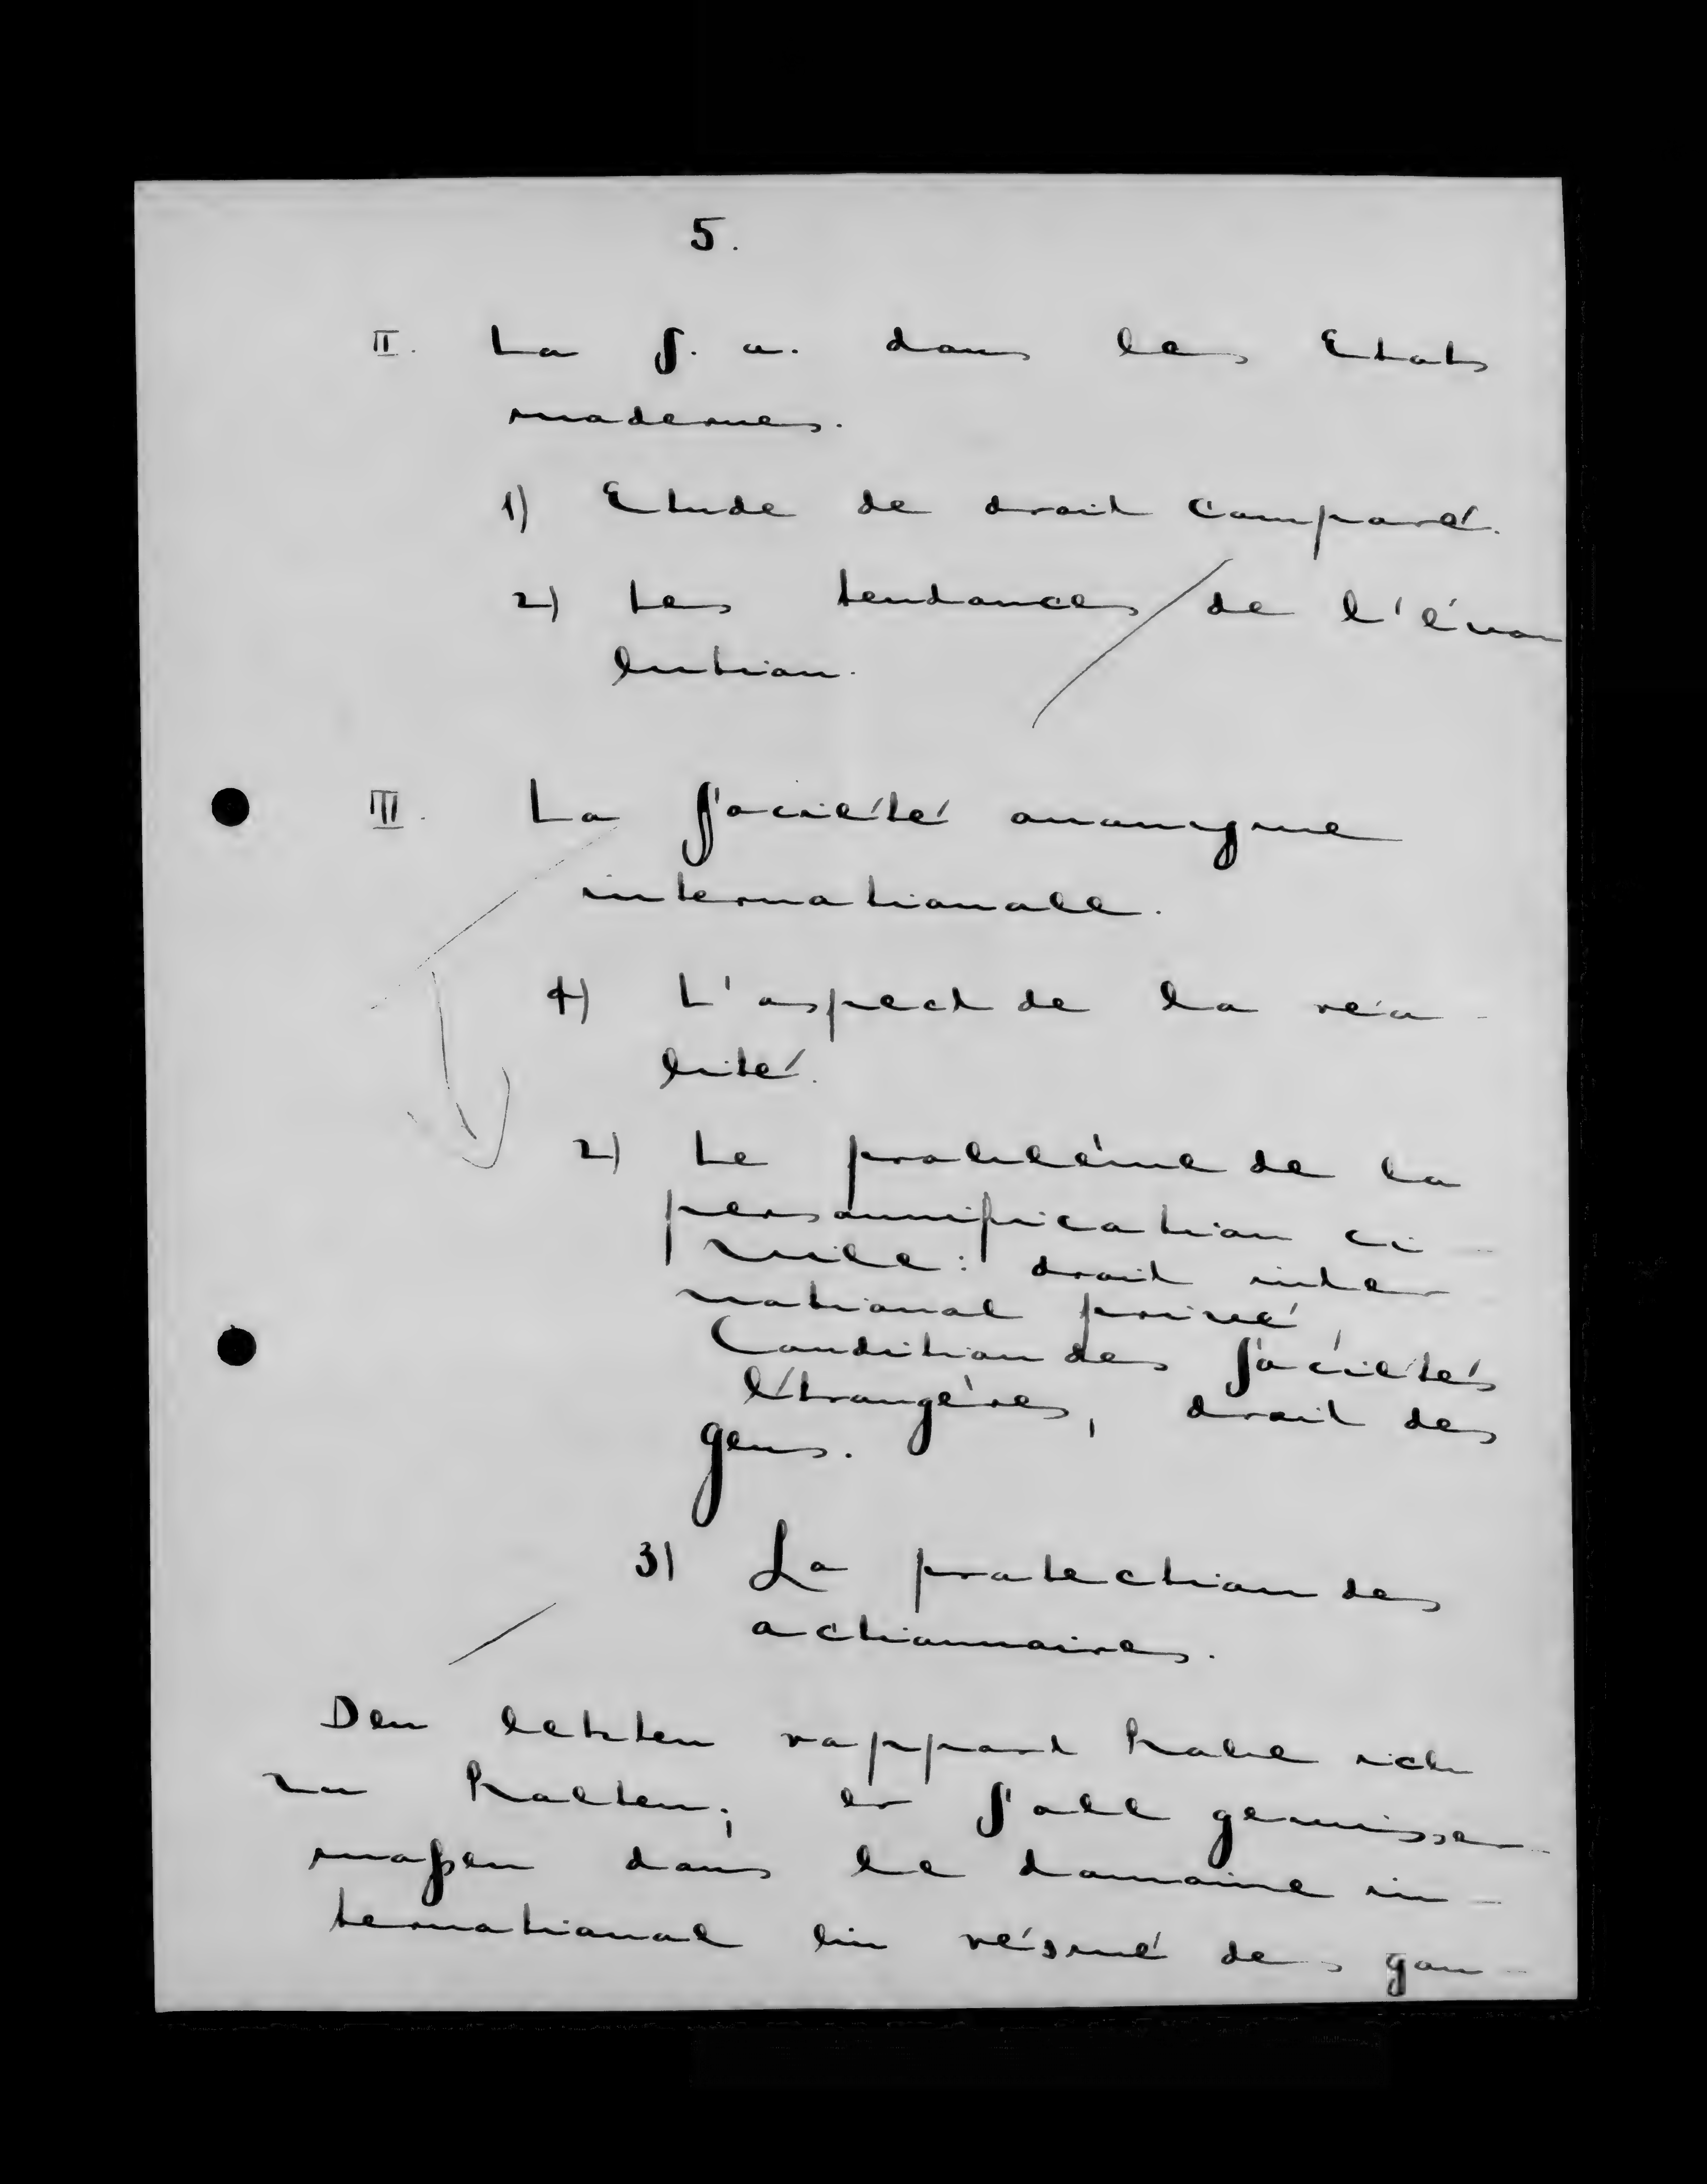 5.
II. La S. a. dans les Etats
modernes.
1) Etude de droit comparé.
2) Les tendances de l'évo
lution.
III. La Société anonyme
internationale.
1) L'aspect de la réa-
lité.
2) Le problème de la
personnification ci-
vile: droit inter
national privé,
Condition des Sociétés
étrangères, droit des
gens.
3) La protection des
actionnaires.
Den letzten rapport habe ich
zu halten; er soll gewisser-
maßen dans le domaine in-
ternational ein résumé des gan-